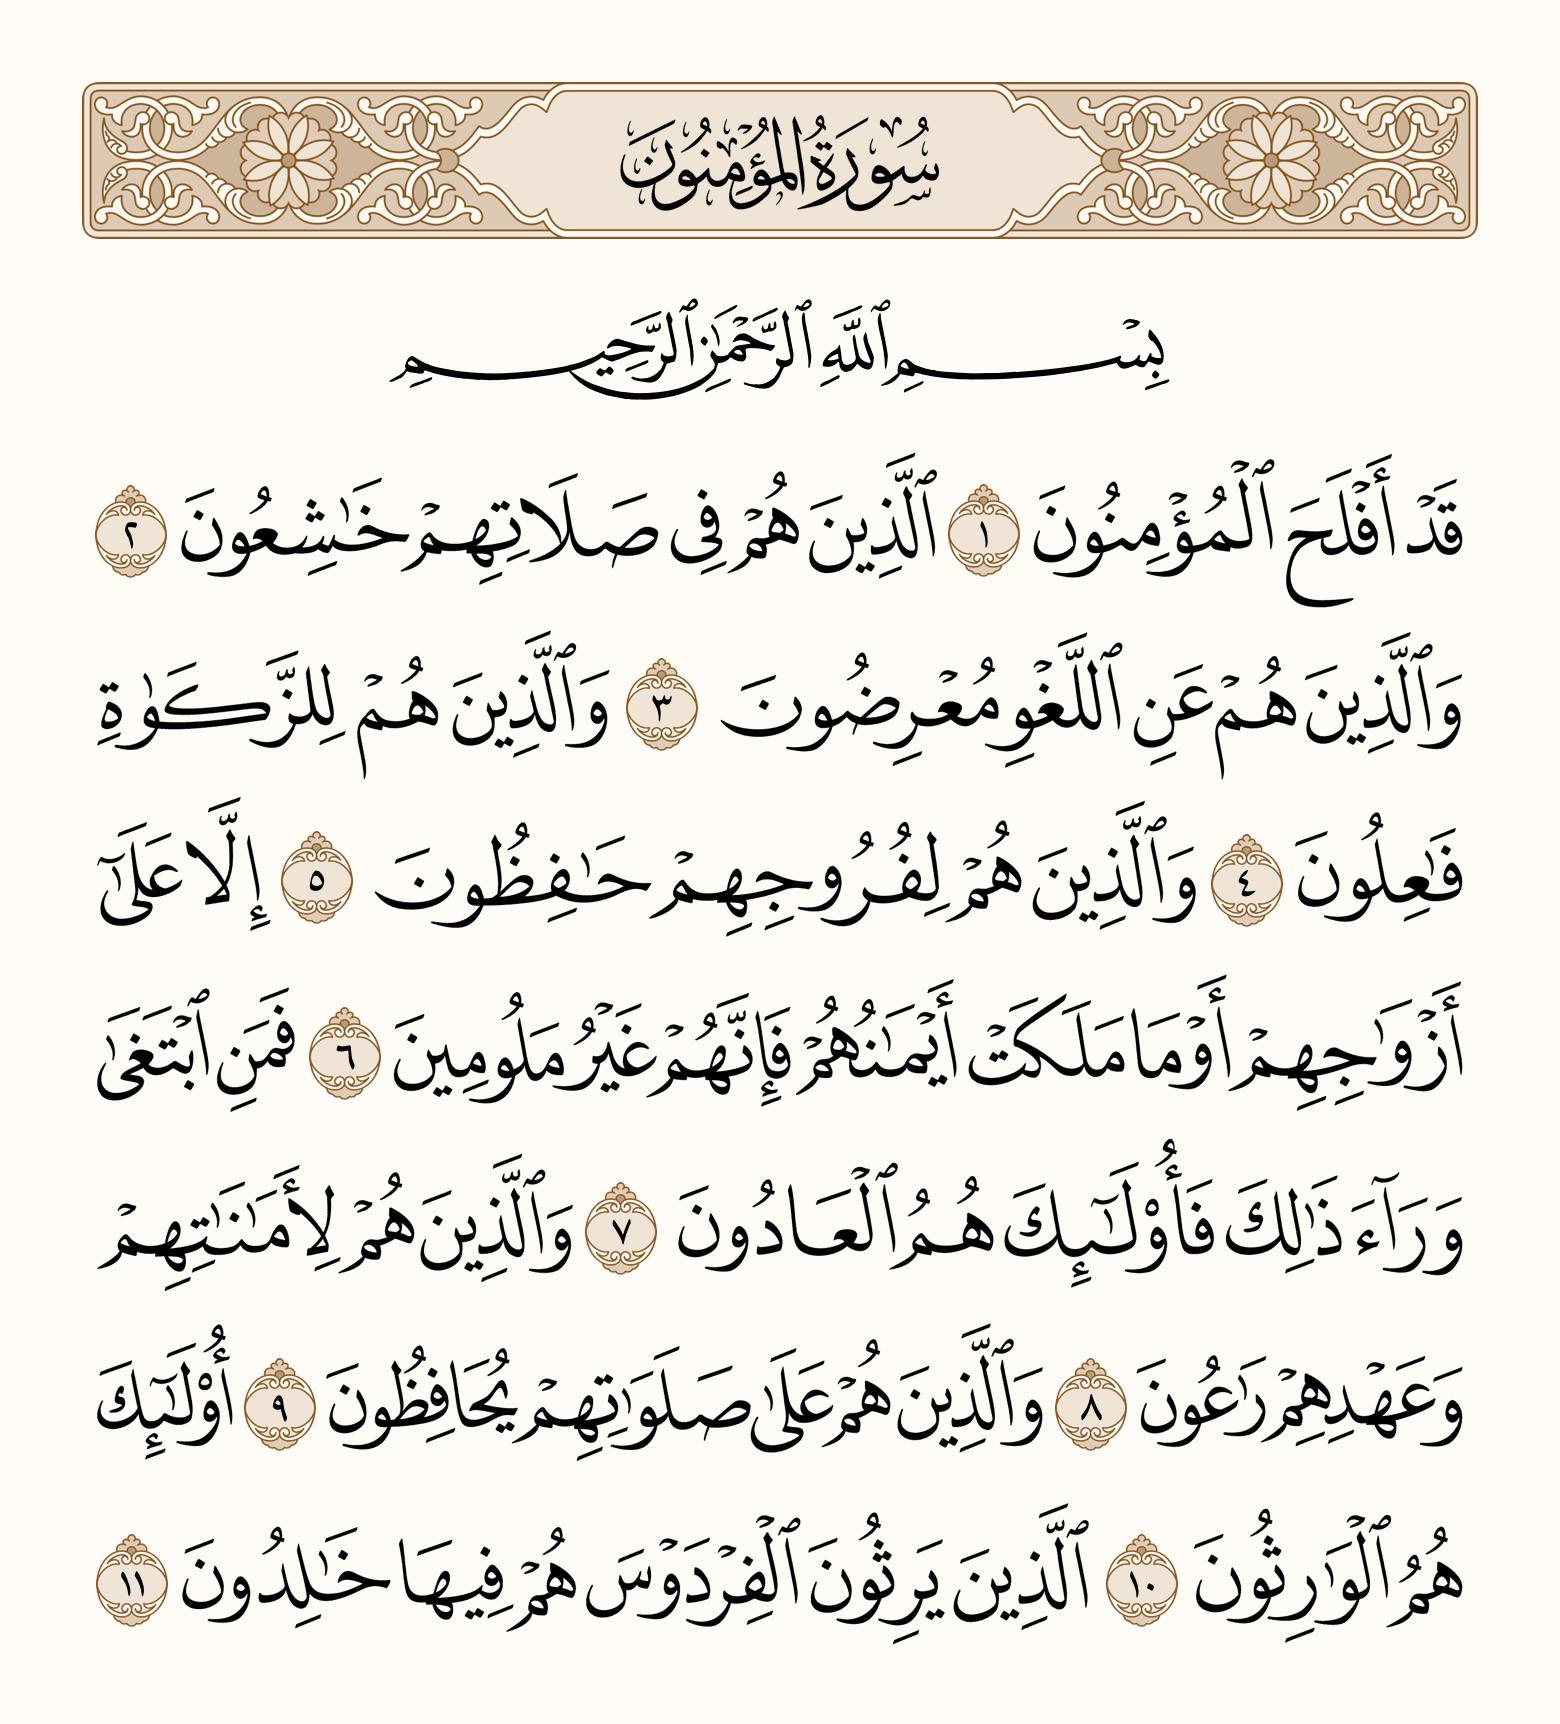 سُورَةُ المُؤْمِنُونَ
بِسْمِ ٱللَّهِ ٱلرَّحْمَٰنِ ٱلرَّحِيمِ
قَدْ أَفْلَحَ ٱلْمُؤْمِنُونَ ١ ٱلَّذِينَ هُمْ فِى صَلَاتِهِمْ خَٰشِعُونَ ٢
وَٱلَّذِينَ هُمْ عَنِ ٱللَّغْوِ مُعْرِضُونَ ٣ وَٱلَّذِينَ هُمْ لِلزَّكَوٰةِ
فَٰعِلُونَ ٤ وَٱلَّذِينَ هُمْ لِفُرُوجِهِمْ حَٰفِظُونَ ٥ إِلَّا عَلَىٰٓ
أَزْوَٰجِهِمْ أَوْ مَا مَلَكَتْ أَيْمَٰنُهُمْ فَإِنَّهُمْ غَيْرُ مَلُومِينَ ٦ فَمَنِ ٱبْتَغَىٰ
وَرَآءَ ذَٰلِكَ فَأُو۟لَٰٓئِكَ هُمُ ٱلْعَادُونَ ٧ وَٱلَّذِينَ هُمْ لِأَمَٰنَٰتِهِمْ
وَعَهْدِهِمْ رَٰعُونَ ٨ وَٱلَّذِينَ هُمْ عَلَىٰ صَلَوَٰتِهِمْ يُحَافِظُونَ ٩ أُو۟لَٰٓئِكَ
هُمُ ٱلْوَٰرِثُونَ ١٠ ٱلَّذِينَ يَرِثُونَ ٱلْفِرْدَوْسَ هُمْ فِيهَا خَٰلِدُونَ ١١